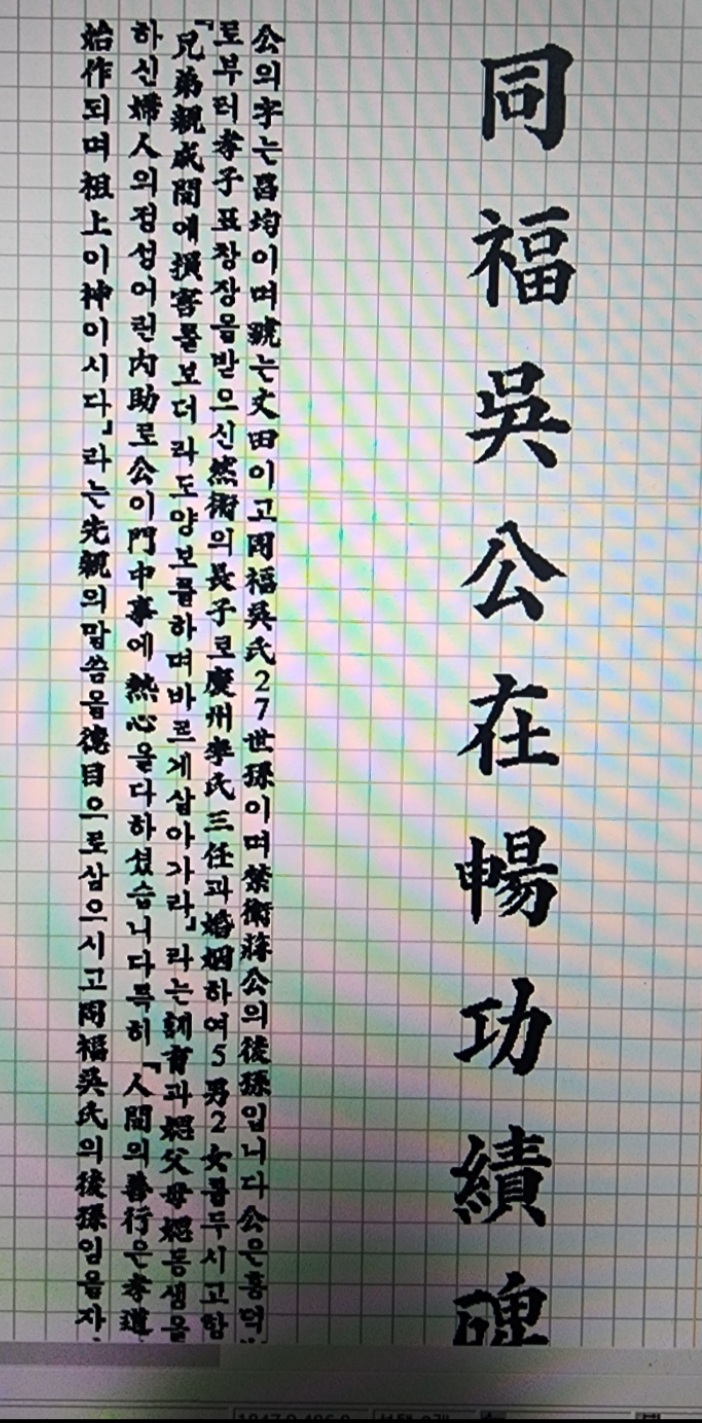 同福吳公在暢功績碑
公의字는昌均이며號는丈田이고同福吳氏27世孫이며禁衛蔣公의後孫입니다公은흥덕
로부터孝子표창장을받으신然術의長子로慶州李氏三任과婚姻하여5男2女를두시고항
「兄弟親戚間에損害를보더라도양보를하며바르게살아가라」라는訓育과父母동생을
하신婦人의정성어린內助로公이門中事에熱心을다하셨습니다특히「人間의善行은孝道
始作되며祖上이神이시다」라는先親의말씀을德目으로삼으시고同福吳氏의後孫임을자